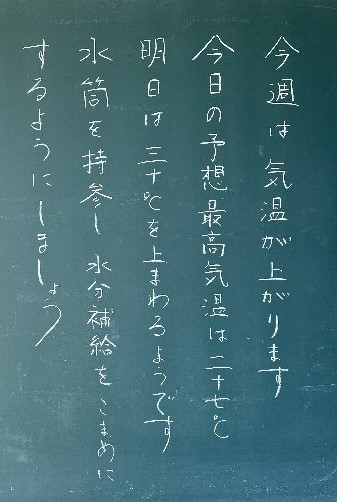 今週は気温が上がります
今日の予想最高気温は二十七℃
明日は三十℃を上まわるようです
水筒を持参し水分補給をこまめに
するようにしましょう